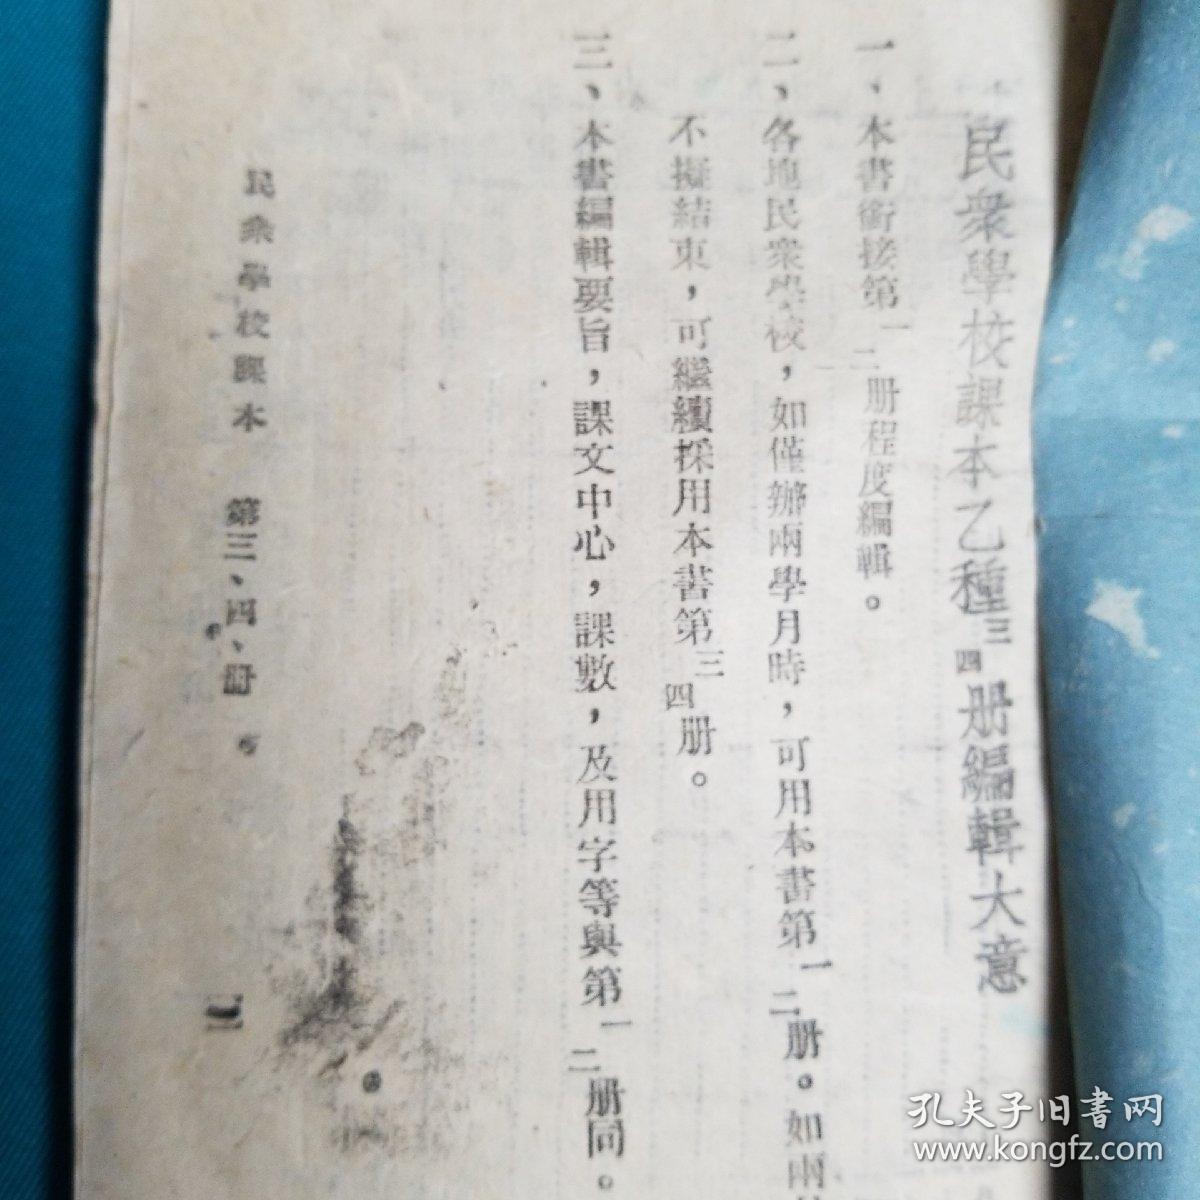 民衆學校課本乙種三四册編輯大意
一、本書銜接第一二册程度編輯。
二、各地民衆學校，如僅辦兩學月時，可用本書第一二册。如兩
不擬結束，可繼續採用本書第三四册。
三、本書編輯要旨，課文中心，課數，及用字等與第一二册同。
民衆學校課本 第三、四、册
孔夫子旧书网
www.kongfz.com